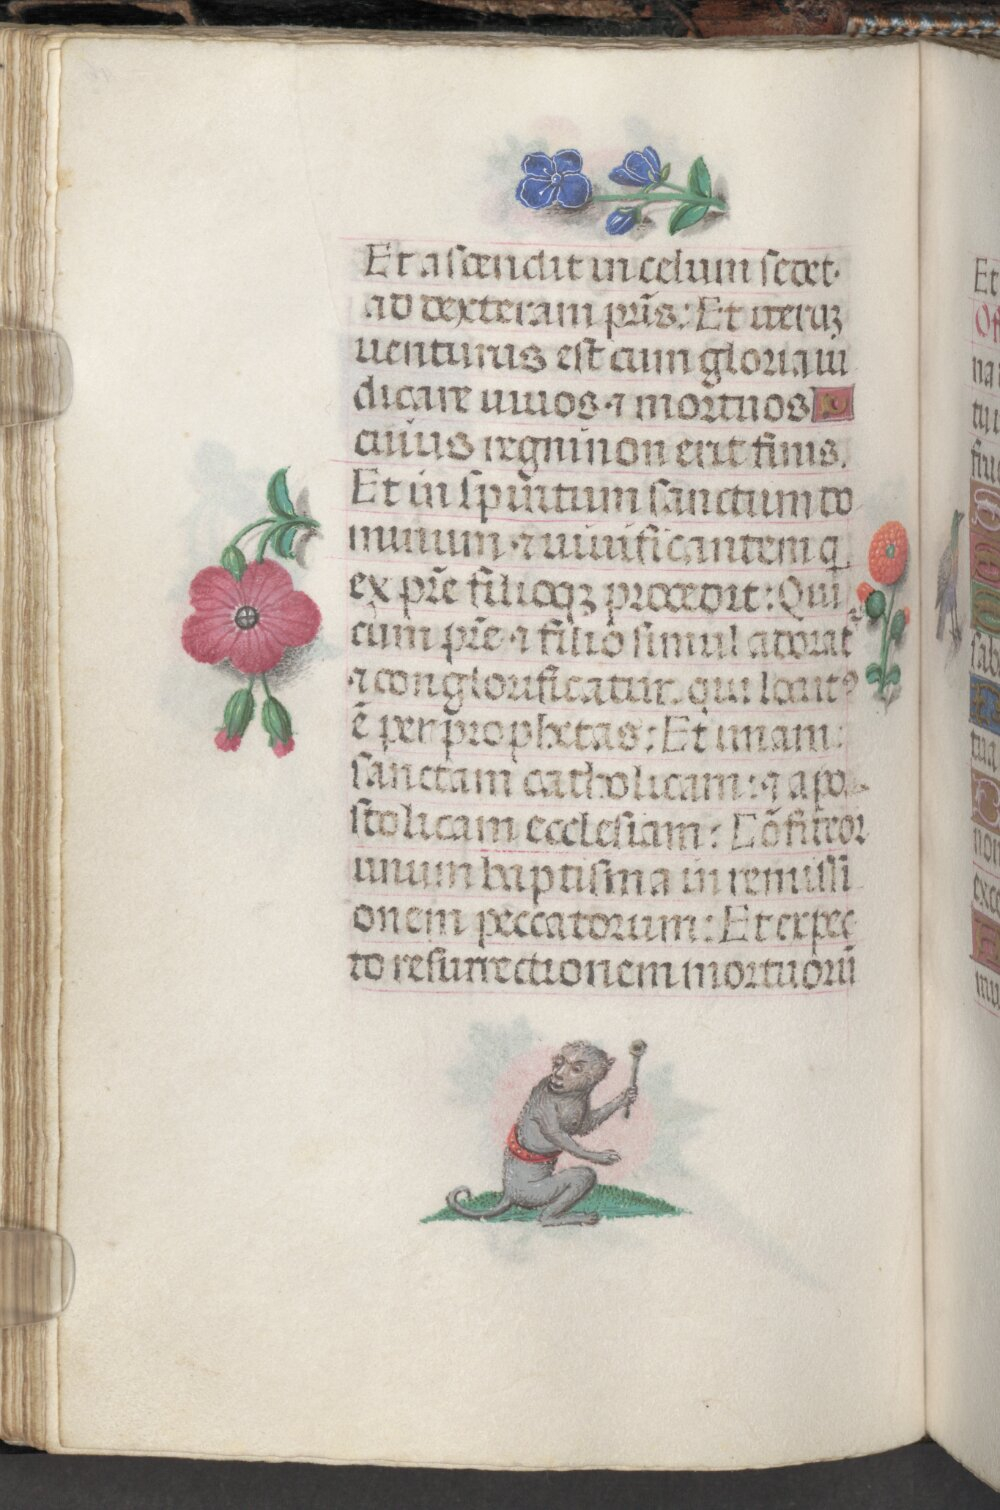 Et ascendit in celum sedet
ad dexteram pr̃is: Et iteruꝫ
venturus est cum gloria iu
dicare uiuos ⁊ mortuos
cuius regni non erit finis.
Et in spiritum sanctum do
minum ⁊ uiuificantem q
ex pr̃e filioqꝫ procedit: Qui
cum pr̃e ⁊ filio simul adorat᷑
⁊ conglorificatur. qui locutꝰ
ẽ per prophetas: Et unam
sanctam catholicam: ⁊ apo
stolicam ecclesiam: Cõfiteor
unum baptisma in remissi
onem peccatorum: Et expec
to resurrectionem mortuorũ
Et
na
tu
sab
tua
non
exc